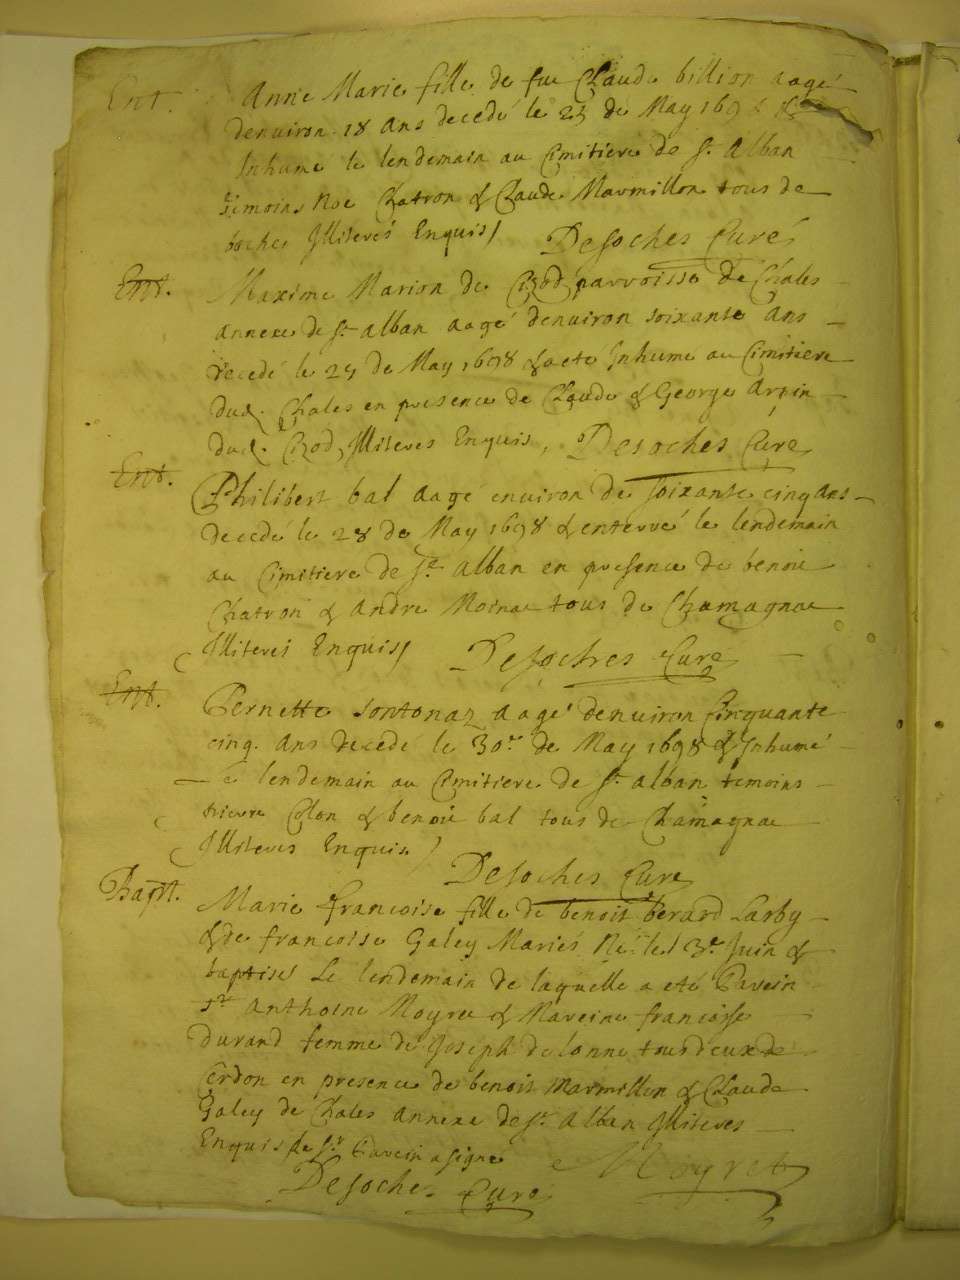 Ent. Anne Marie fille de fue Claude billion aagé
denuiron 18 ans decedé le 23 de May 169
Inhume le lendemain au Cimitiere de St alban
temoins Noe Chatron & Claude Marmillon tous de
boches Illiterés Enquis Desoches Curé
Ent. Maxime Marion de Crod parroisse de Chales
annexe de St alban aagé denuiron soixante ans
decedé le 25 de May 1698 & a eté Inhumé au Cimitiere
dud. Chales en presence de Claude & George Arpin
dud. Crod, Illiteres Enquis, Desoches Cure
Ent. Philibert bal aagé enuiron de soixante cinq ans
decedé le 28 de May 1698 & enterré le lendemain
au Cimitiere de St alban en presence de benoit
Chatron & andre Moinae tous de Chamagnae
Illiterés Enquis Desoches Cure
Ent. Pernette sontonaz aagé denuiron Cinquante
cinq. ans decedé le 30e de May 1698 & Inhumé
le lendemain au Cimitiere de St alban temoins
pierre Colon & benoit bal tous de Chamagnae
Illiteres Enquis Desoches Cure
Bapt. Marie francoise fille de benoit berard Larby
& de francoise Galey Mariés Neé le 3e Juin &
baptiseé Le lendemain de laquelle a eté Parein
Sr anthoine Moyret & Mareine francoise
durand femme de Joseph delonne tous deux de
Cerdon en presence de benoit Marmillon & Claude
Galey de Chales annexe de St alban Illiteres
Enquis le Sr Parein a signé Moyret
Desoches Cure